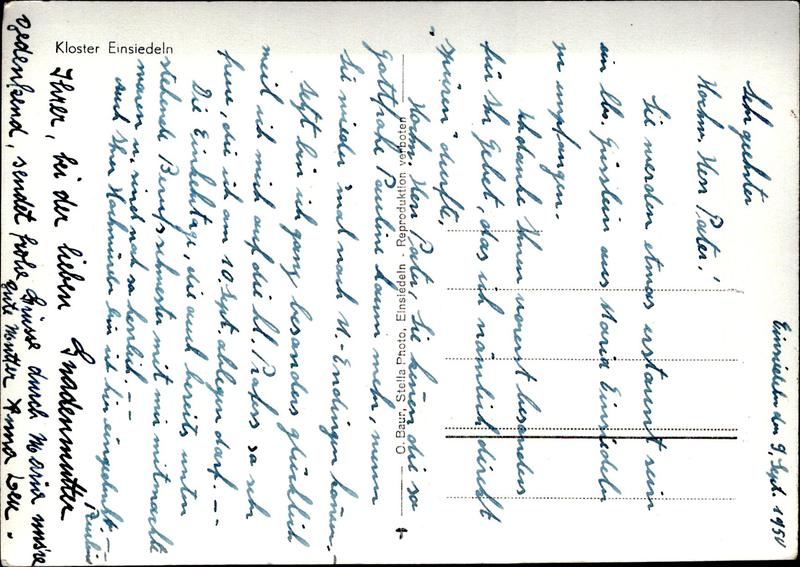 Kloster Einsiedeln
Einsiedeln den 9. Sept. 1950
Sehr geehrter
Hochw. Herr Pater!
Sie werden etwas erstaunt sein
ein lbs. Grüsslein aus Maria Einsiedeln
zu empfangen.
Ich danke Ihnen vorerst besonders
für Ihr Gebet, das ich nämlich direkt
"spüren" durfte.
Hochw. Herr Pater, Sie können die so
Pauline kaum mehr, wenn
Sie wieder mal nach St. - Endingen kommen. -
Jetzt bin ich ganz besonders glücklich
weil ich mich auf die hl. so sehr
freue, die ich am 10. Sept. ablegen darf. --
Die Einkehrtage, die auch bereits unten
stehende Berufsschwester mit mir mitmachte
waren u. sind noch so herrlich. --
Auch Ihr Hochwürden bin ich hin eingedenkt. --
Pauline
Ihrer, bei der lieben Gnadenmutter
gedenkend, sendet frohe Grüsse durch Maria unsre
gute Mutter Anna Leu.
O. Baur, Stella Photo, Einsiedeln - Reproduktion verboten